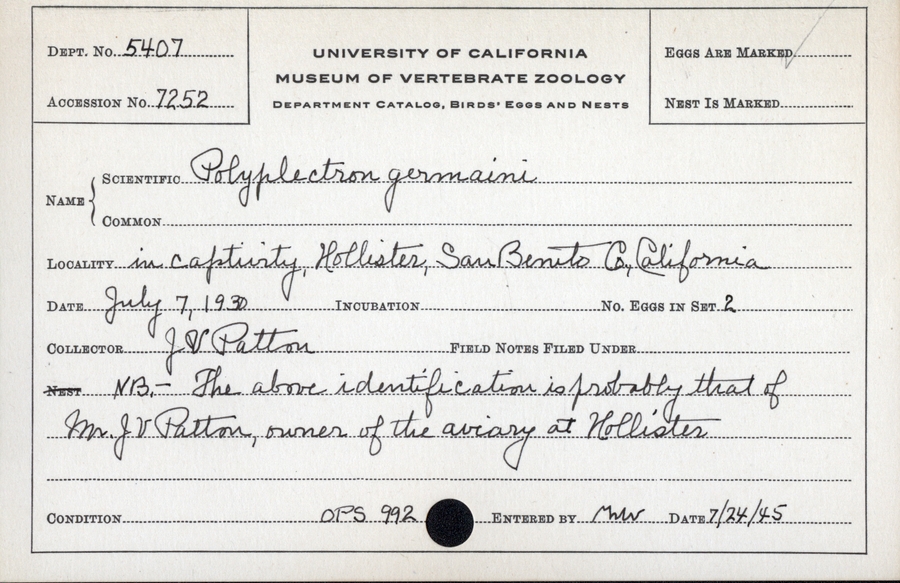 DEPT. No. 5407
UNIVERSITY OF CALIFORNIA
MUSEUM OF VERTEBRATE ZOOLOGY
DEPARTMENT CATALOG, BIRDS' EGGS AND NESTS
EGGS ARE MARKED
ACCESSION No. 7252
NEST IS MARKED
NAME
SCIENTIFIC Polyplectron germaini
COMMON
LOCALITY in captivity, Hollister, San Benito Co., California
DATE July 7, 1930 INCUBATION No. EGGS IN SET 2
COLLECTOR J V Patton FIELD NOTES FILED UNDER
NEST NB.- The above identification is probably that of
Mr. J V Patton, owner of the aviary at Hollister
CONDITION OPS 992 ENTERED BY MW DATE 7/24/45